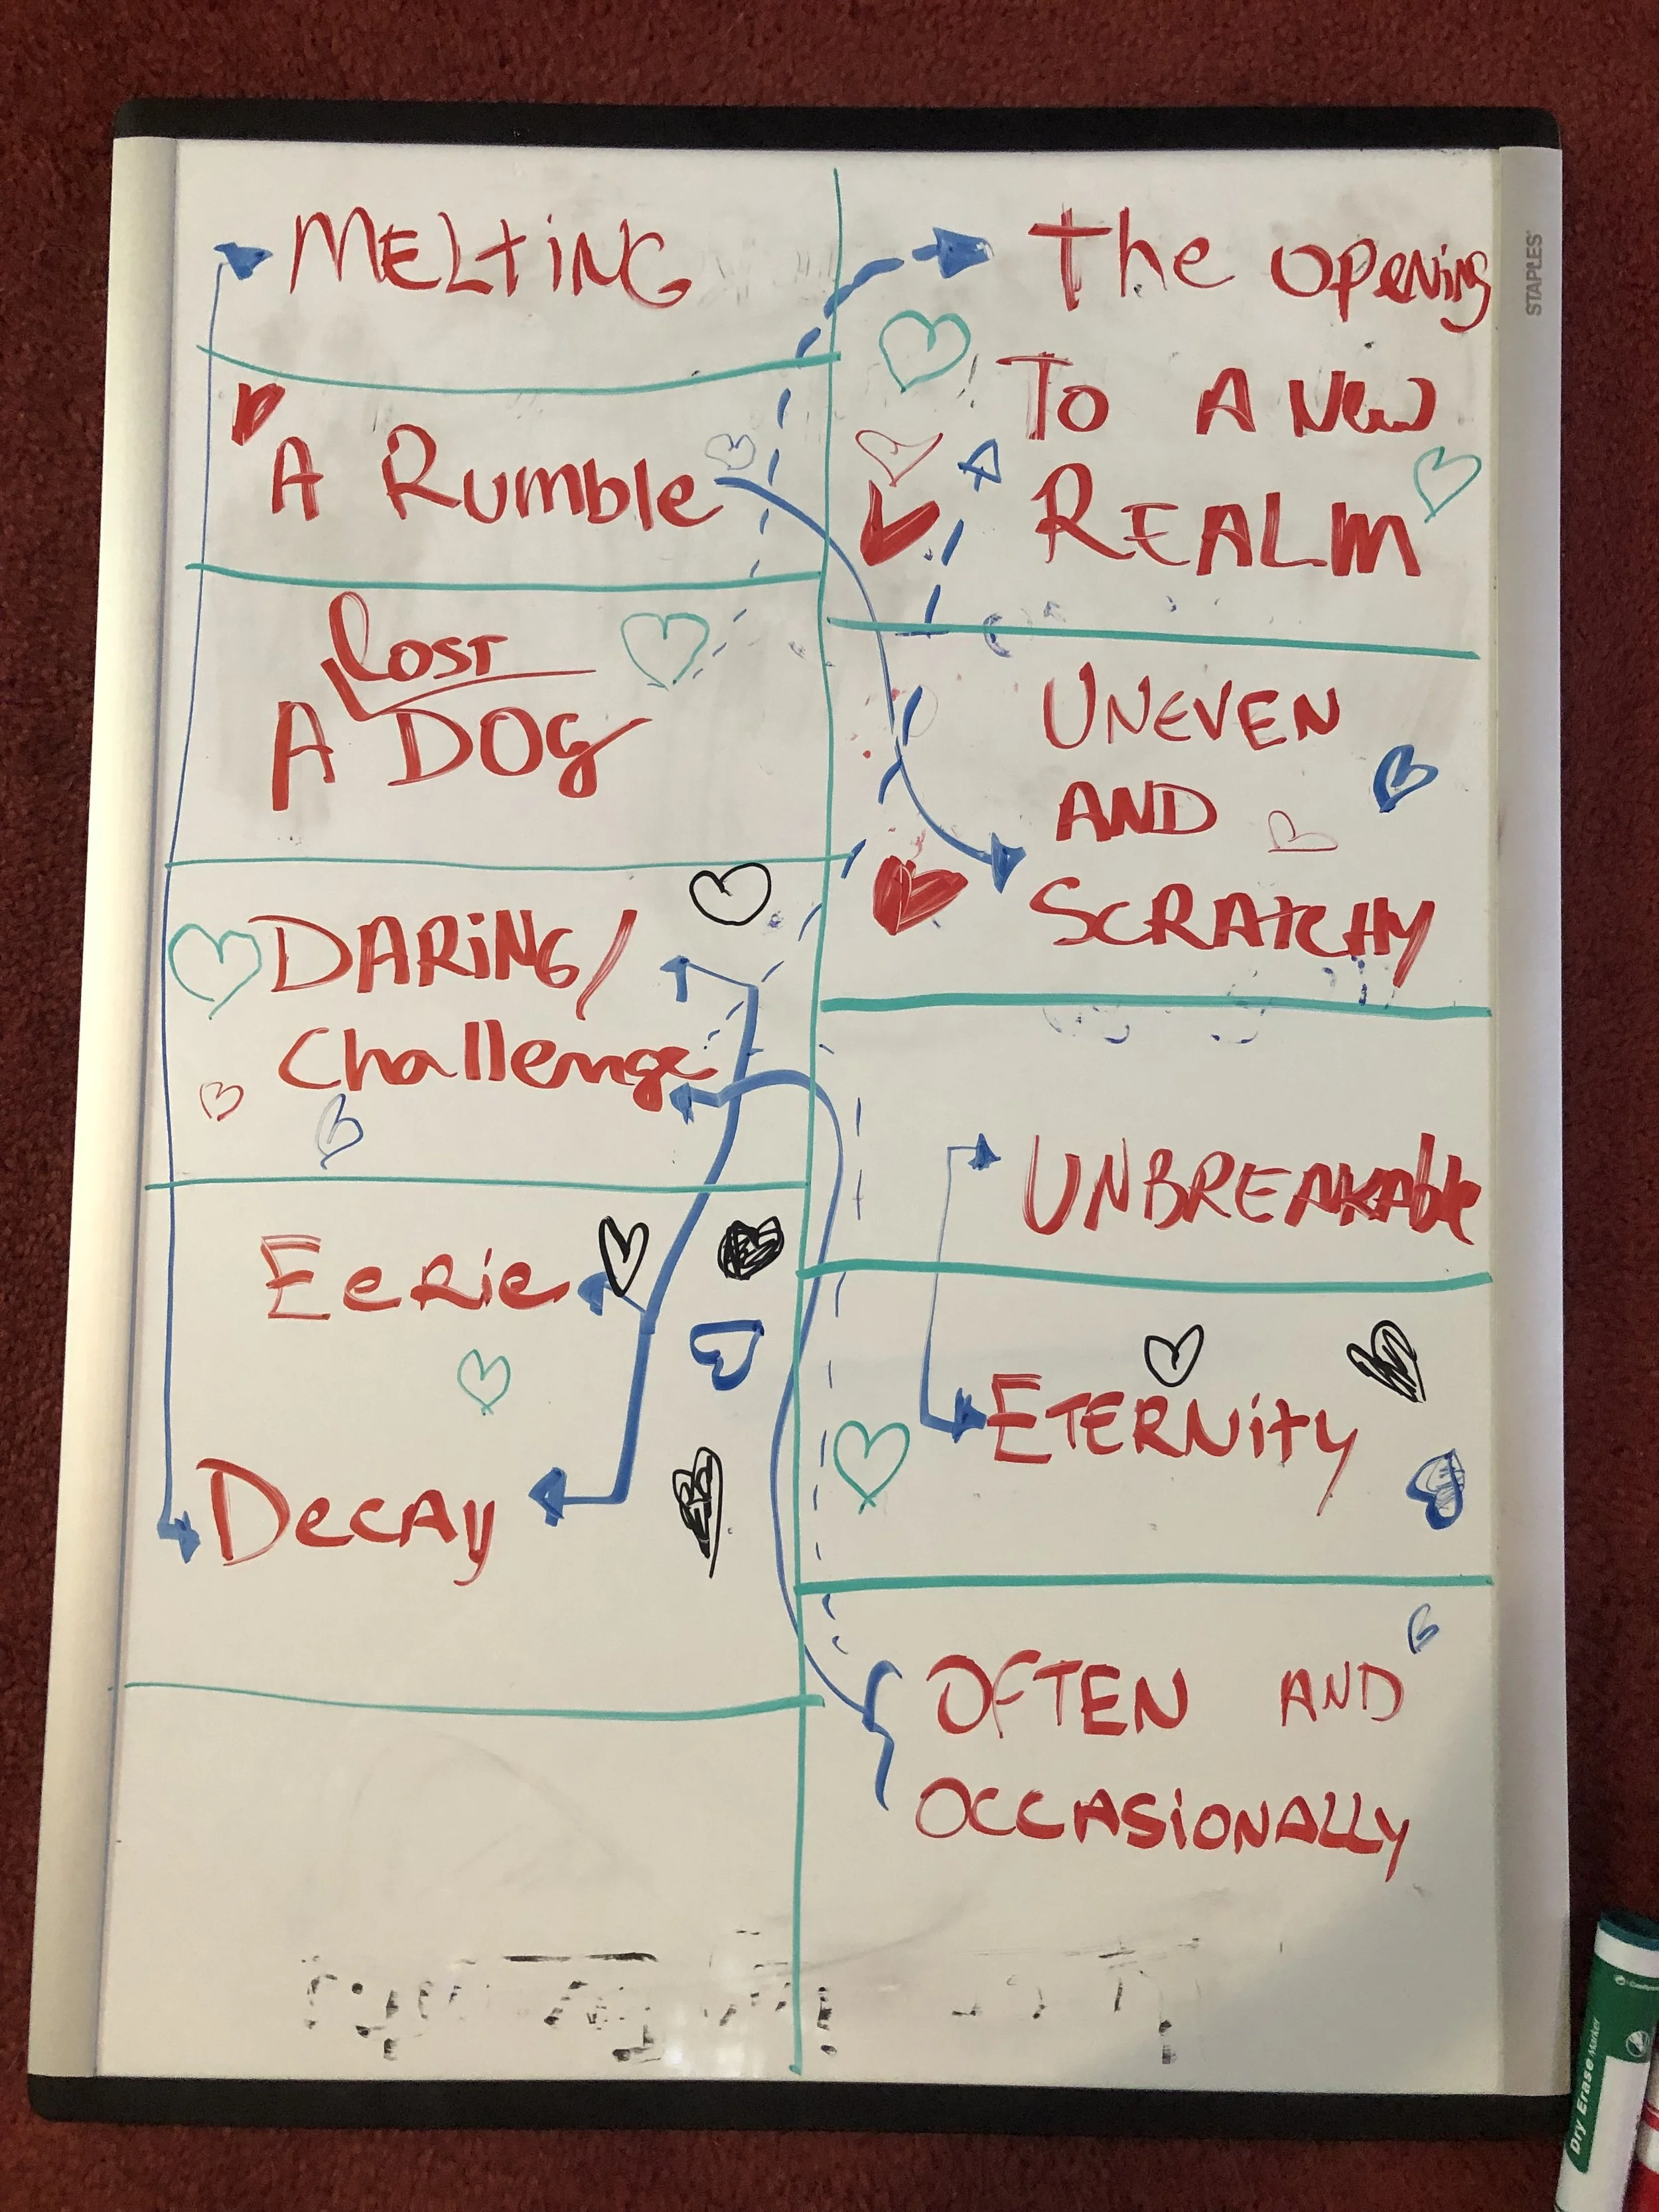 MELTING
A Rumble
Lost
A DOG
DARING/
Challenge
Eerie
Decay
The Opening
To A New
REALM
UNEVEN
AND
SCRATCHY
UNBREAKAble
ETERNITY
OFTEN AND
OCCASIONALLY
STAPLES
Dry Erase Marker